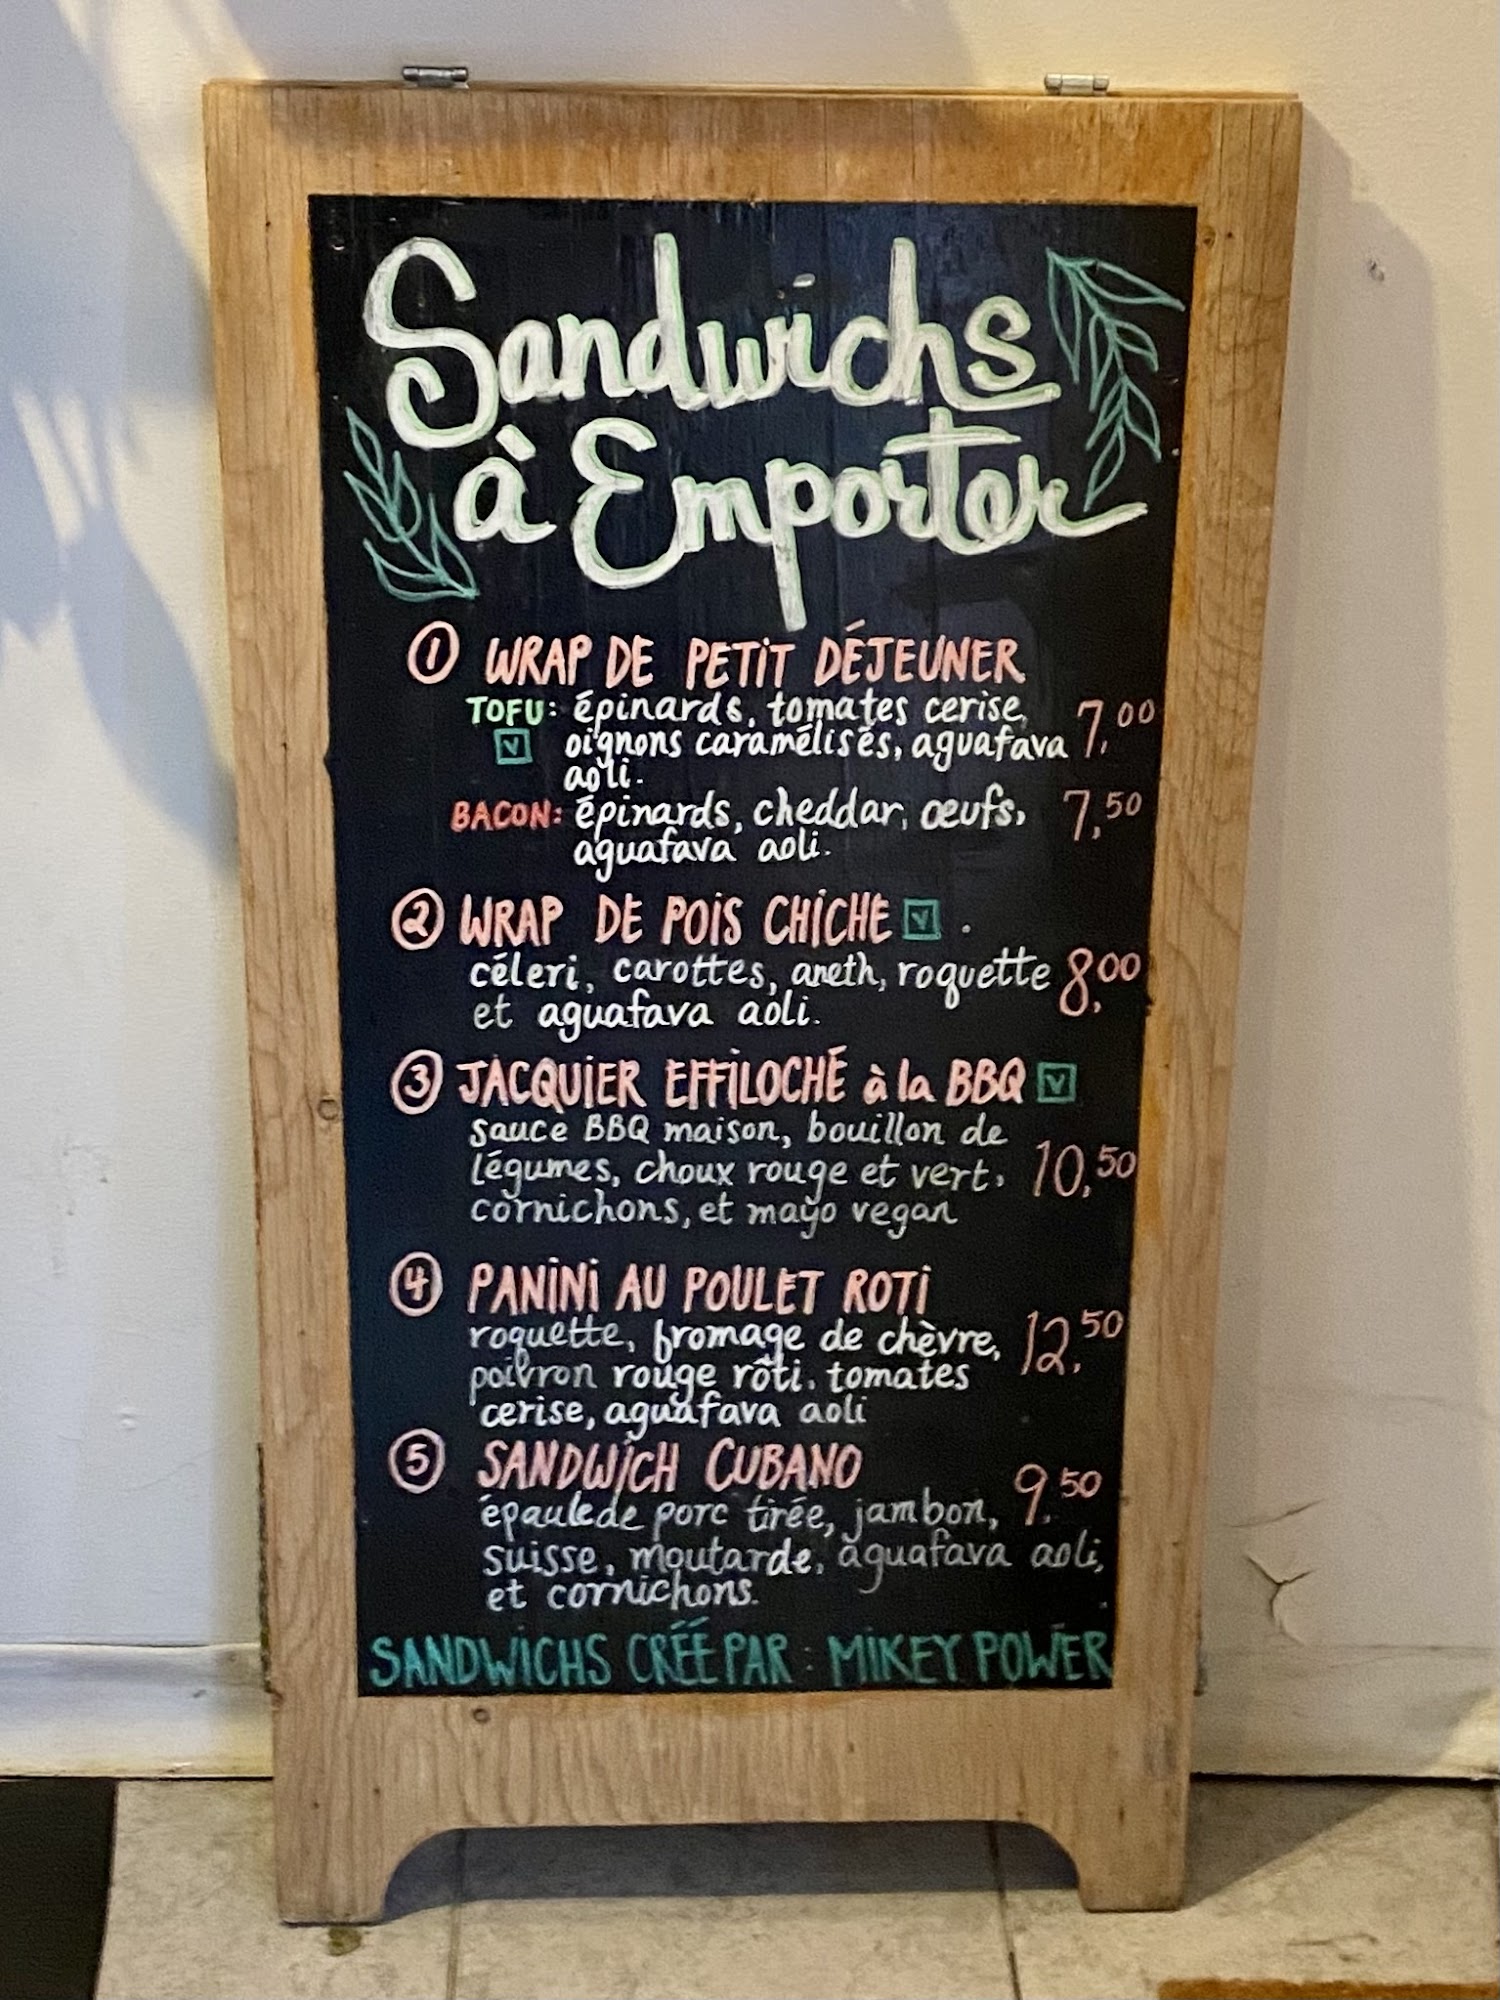 Sandwichs
à Emporter
① WRAP DE PETIT DÉJEUNER
TOFU: épinards, tomates cerise, 7,00
V oignons caramélisés, aguafava
aoli.
BACON: épinards, cheddar, œufs, 7,50
aguafava aoli.
② WRAP DE POIS CHICHE V
céleri, carottes, aneth, roquette 8,00
et aguafava aoli.
③ JACQUIER EFFILOCHÉ à la BBQ V
sauce BBQ maison, bouillon de
légumes, choux rouge et vert, 10,50
cornichons, et mayo vegan
④ PANINI AU POULET ROTI
roquette, fromage de chèvre, 12,50
poivron rouge rôti, tomates
cerise, aguafava aoli
⑤ SANDWICH CUBANO
épaule de porc tirée, jambon, 9,50
suisse, moutarde, aguafava aoli,
et cornichons.
SANDWICHS CRÉÉ PAR : MIKEY POWER